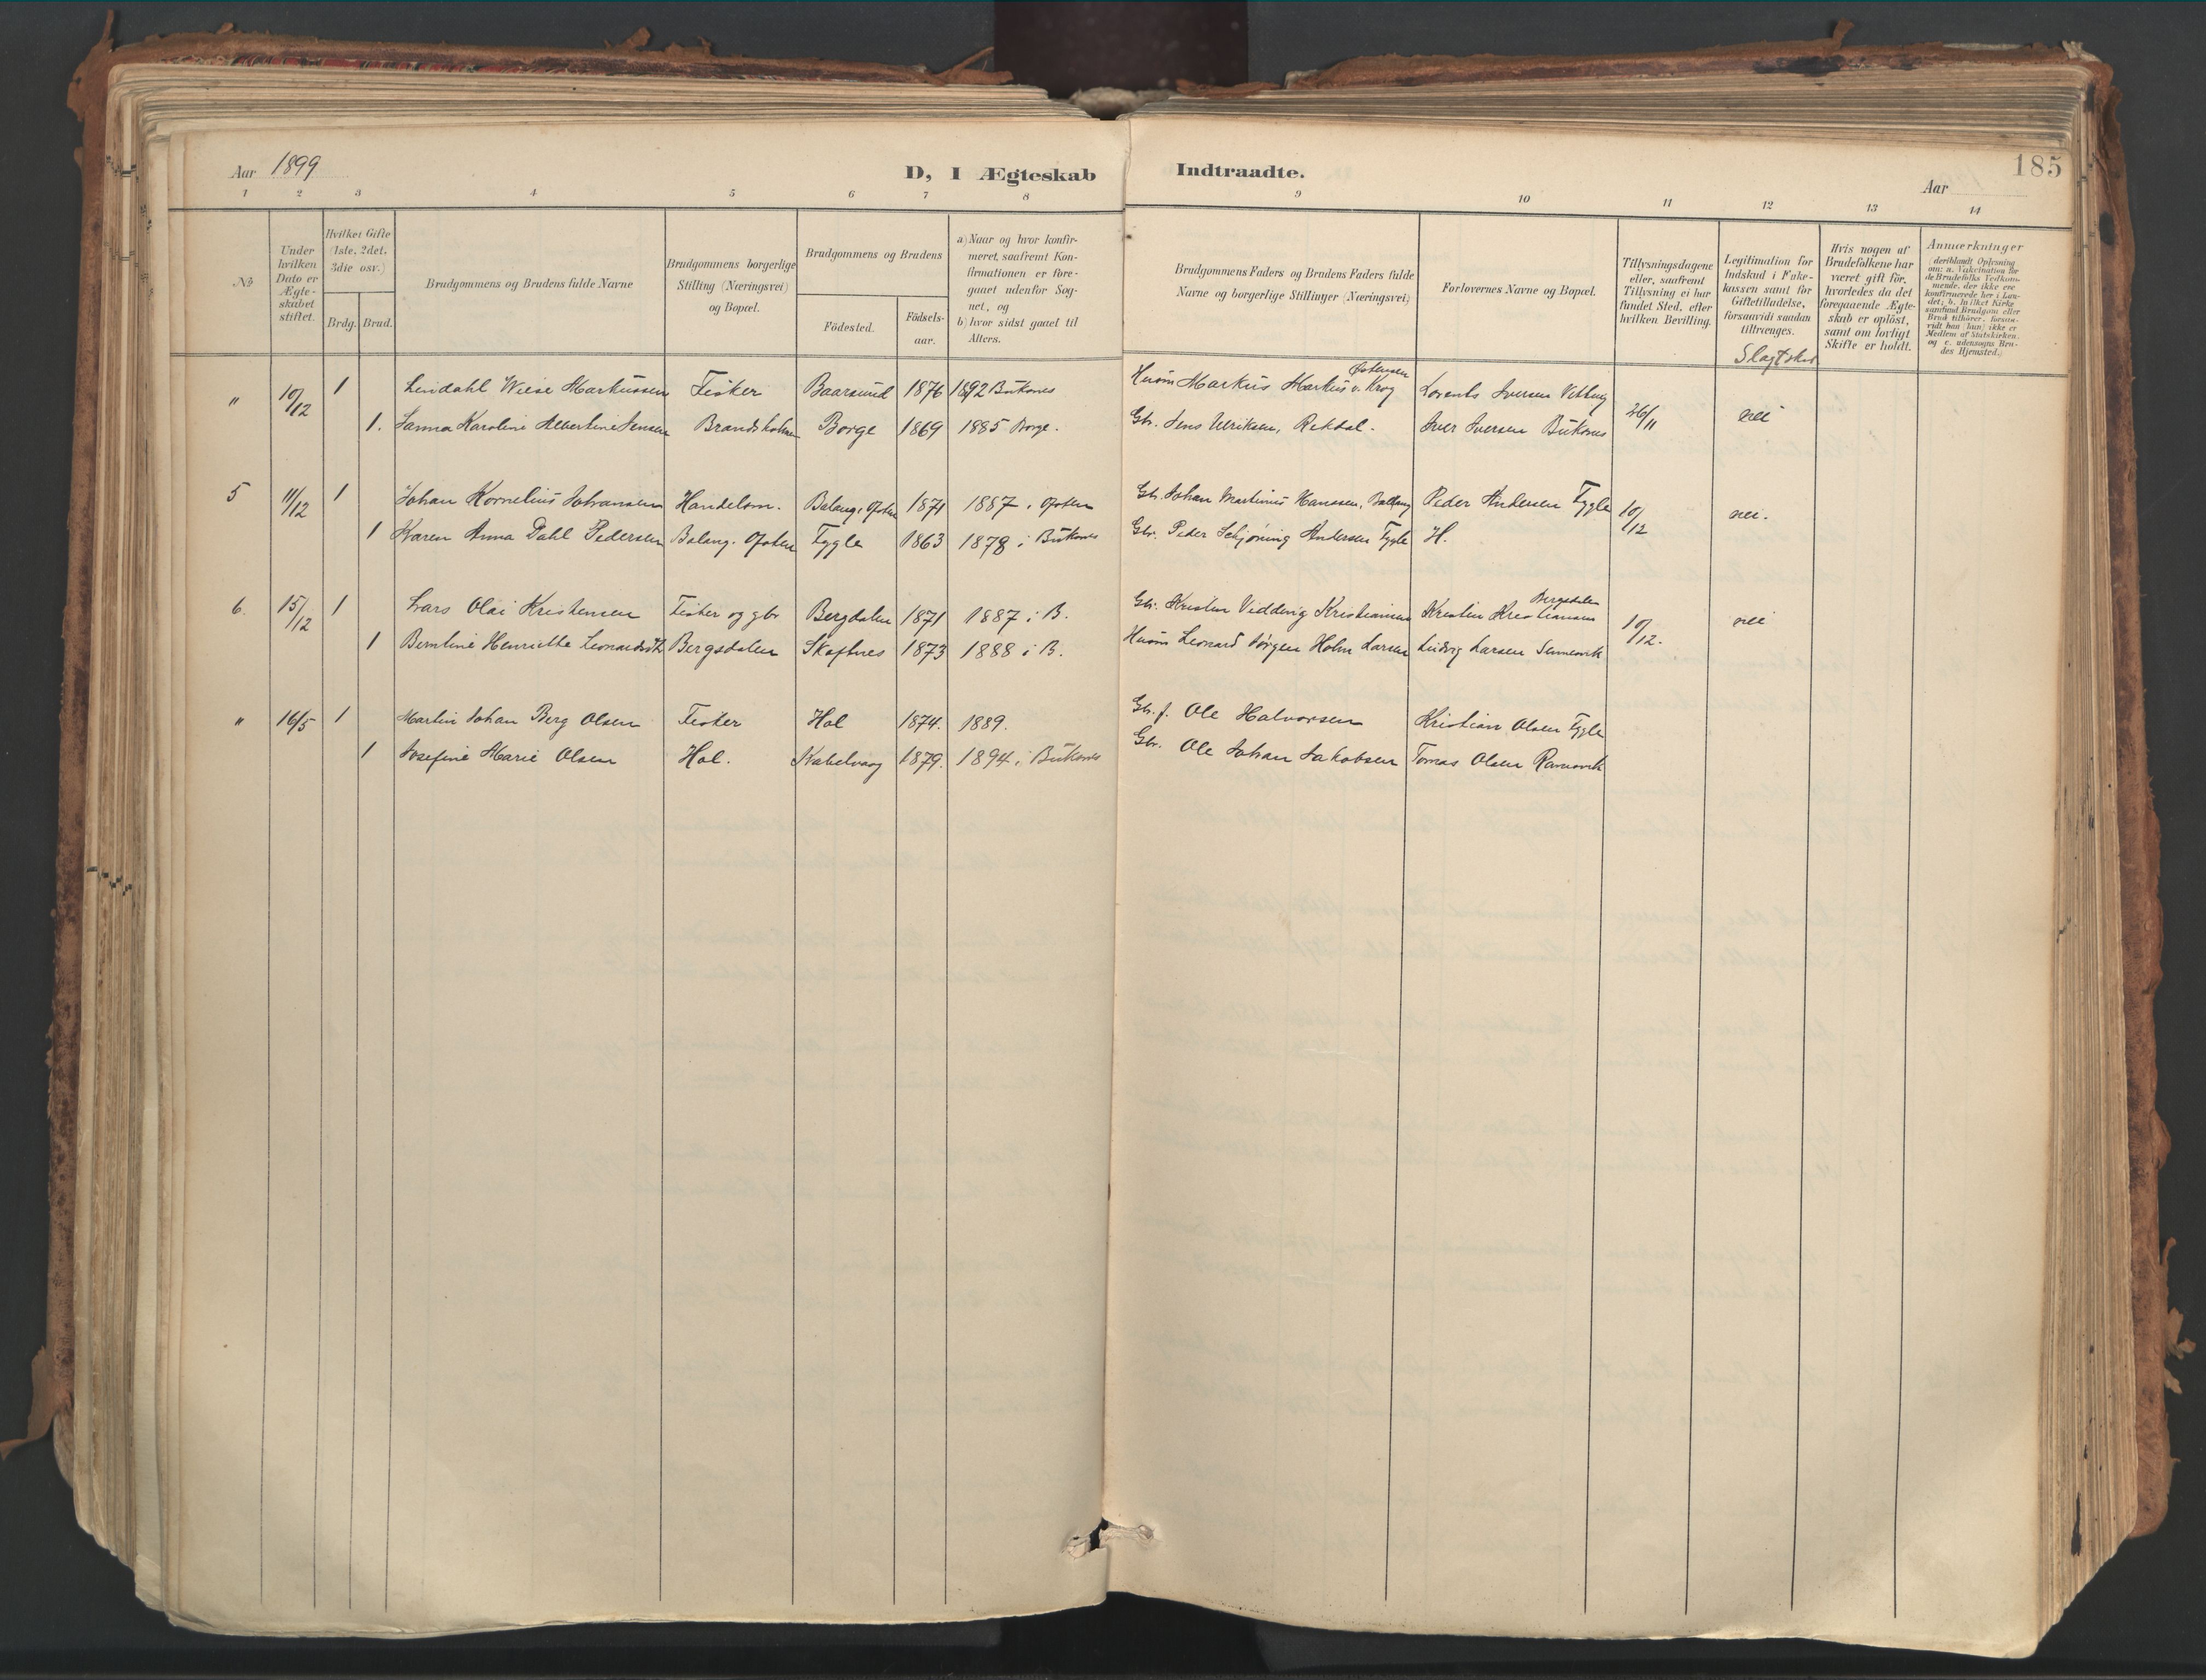 Aar 1899
D, I Ægteskab Indtraadte.
185
Aar
1 2 3 4 5 6 7 8 9 10 11 12 13 14
No
Under hvilken Dato er Ægteskabet stiftet.
Hvilket Gifte (1ste, 2det, 3die osv.)
Brdg. Brud.
Brudgommens og Brudens fulde Navne
Brudgommens borgerlige Stilling (Næringsvei) og Bopæl.
Brudgommens og Brudens
Födested.
Födsels-aar.
a) Naar og hvor konfirmeret, saafremt Konfirmationen er foregaaet udenfor Sognet, og
b) hvor sidst gaaet til Alters.
Brudgommens Faders og Brudens Faders fulde Navne og borgerlige Stillinger (Næringsvei)
Forlovernes Navne og Bopæl.
Tillysningsdagene eller, saafremt Tillysning ei har fundet Sted, efter hvilken Bevilling.
Legitimation for Indskud i Enkekassen samt for Giftetilladelse, forsaavidt saadan tiltrænges.
Hvis nogen af Brudefolkene har været gift för, hvorledes da det foregaaende Ægteskab er oplöst, samt om lovligt Skifte er holdt.
Anmærkninger (deriblandt Oplysning om: a. Vakcination for de Brudefolks Vedkommende, der ikke ere konfirmerede her i Landet; b. hvilket Kirkesamfund Brudgom eller Brud tilhörer, forsaavidt han (hun) ikke er Medlem af Statskirken, og c. udensogns Brudes Hjemsted.)
Slagtskab
" 10/12 1 Lindahl Wiese Markussen Fisker Baarsund 1876 1892 Buksnes Husm Markus Markus v. Krog Lorents Iversen 26/11 nei
1. Sanna Karoline Albertine Jensen Brandsholmen Borge 1869 1885 Borge. Gbr. Jens Ulriksen, Rekdal. Iver Iversen Buksnes
5 11/12 1 Johan Kornelius Johansen Handelsm. Balang. Ofoten 1871 1887 i Ofoten Gbr. Johan Martinus Hanssen, Ballang Peder Andersen Fygle 10/12 nei.
1 Karen Anna Dahl Pedersen Balang. Ofoten Fygle 1863 1878 i Buksnes Gbr. Peder Schjøning Andersen Fygle H.
6. 15/12 1 Lars Olai Kristensen Fisker og gbr Bergdalen 1871 1887 i B. Gbr. Kristen Kristiansen Kristen Kristiansen Bergsdalen 10/12. nei
1 Berntine Henriette Leonardsdtr Bergsdalen Skaftnes 1873 1888 i B. Husm Leonard Jørgen Holm Larsen Ludvig Larsen Sennesvik
" 16/5 1 Martin Johan Berg Olsen Fisker Hol 1874. 1889. Gbr. f. Ole Halvorsen Kristian Olsen Fygle
1 Josefine Marie Olsen Hol. Kabelvaag 1879. 1894 i Buksnes Gbr. Ole Johan Jakobsen Tomas Olsen Ramsvik